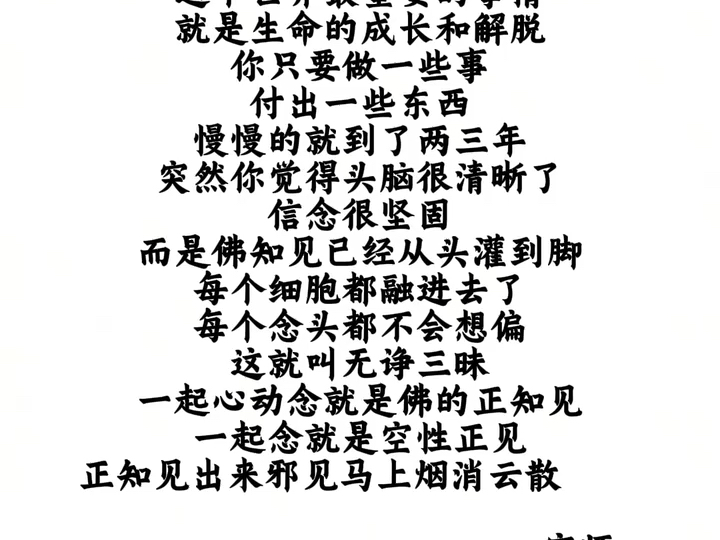 就是生命的成长和解脱
你只要做一些事
付出一些东西
慢慢的就到了两三年
突然你觉得头脑很清晰了
信念很坚固
而是佛知见已经从头灌到脚
每个细胞都融进去了
每个念头都不会想偏
这就叫无诤三昧
一起心动念就是佛的正知见
一起念就是空性正见
正知见出来邪见马上烟消云散